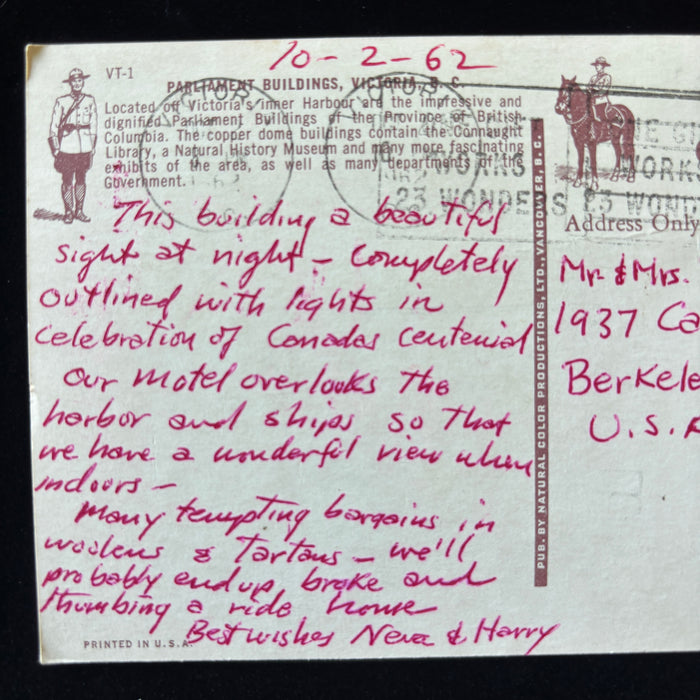 10-2-62
VT-1
PARLIAMENT BUILDINGS, VICTORIA, B. C.
Located off Victoria's inner Harbour are the impressive and
dignified Parliament Buildings of the Province of British
Columbia. The copper dome buildings contain the Connaught
Library, a Natural History Museum and many more fascinating
exhibits of the area, as well as many departments of the
Government.
This building a beautiful
sight at night - completely
outlined with lights in
celebration of Canadas centenial
Our motel overlooks the
harbor and ships so that
we have a wonderful view when
indoors -
Many tempting bargains in
woolens & Tartans - we'll
probably end up broke and
thumbing a ride home
Best wishes Neva & Harry
PRINTED IN U.S.A.
PUB. BY NATURAL COLOR PRODUCTIONS, LTD., VANCOUVER, B. C.
WORKS
WORKS
23 WONDERS 23 WOND
Address Only
Mr. & Mrs.
1937 Ca
Berkele
U.S.A